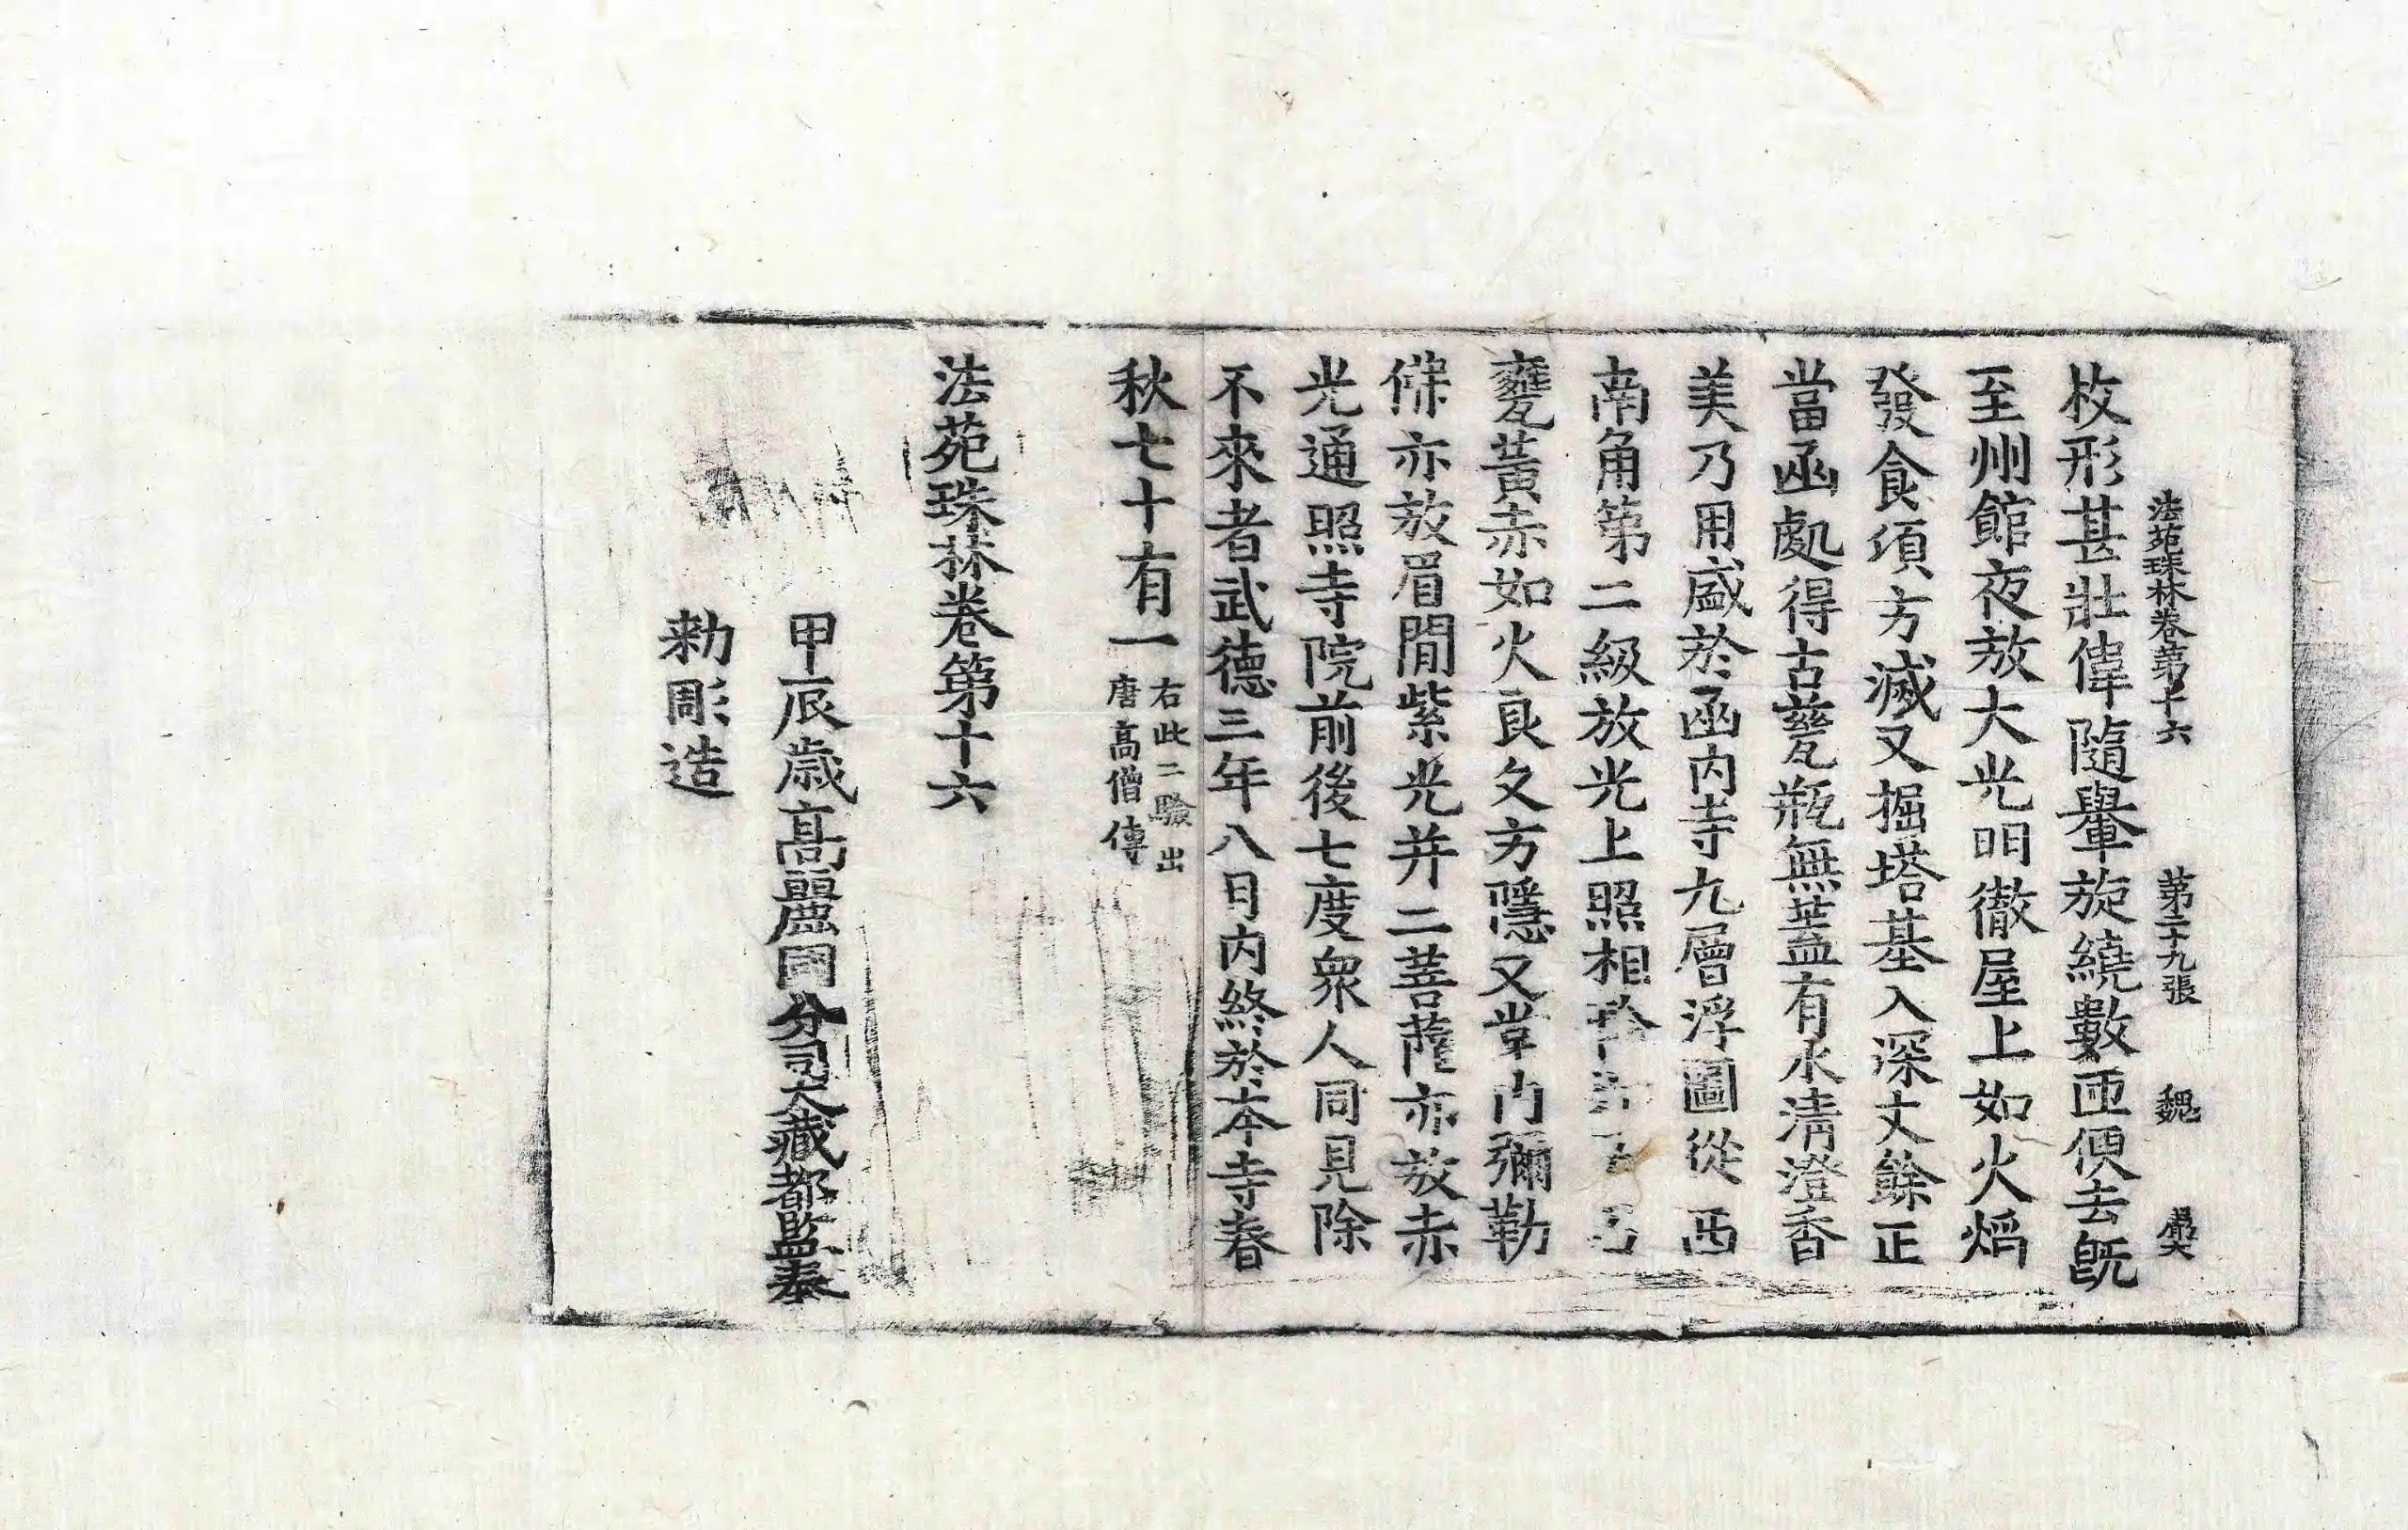 法苑珠林卷第十六　第二十九張　魏
枚形甚壯偉隨轝旋繞數匝便去旣
至州館夜放大光明徹屋上如火焰
發食頃方滅又掘塔基入深丈餘正
當函處得古甆瓶無蓋有水清澄香
美乃用盛於函內寺九層浮圖從西
南角第二級放光上照相
甕黃赤如火良久方隱又堂內彌勒
像亦放眉閒紫光幷二菩薩亦放赤
光通照寺院前後七度衆人同見除
不來者武德三年八月內終於本寺春
秋七十有一右此二驗出唐高僧傳
法苑珠林卷第十六
甲辰歳高麗國分司大藏都監奉
勑彫造